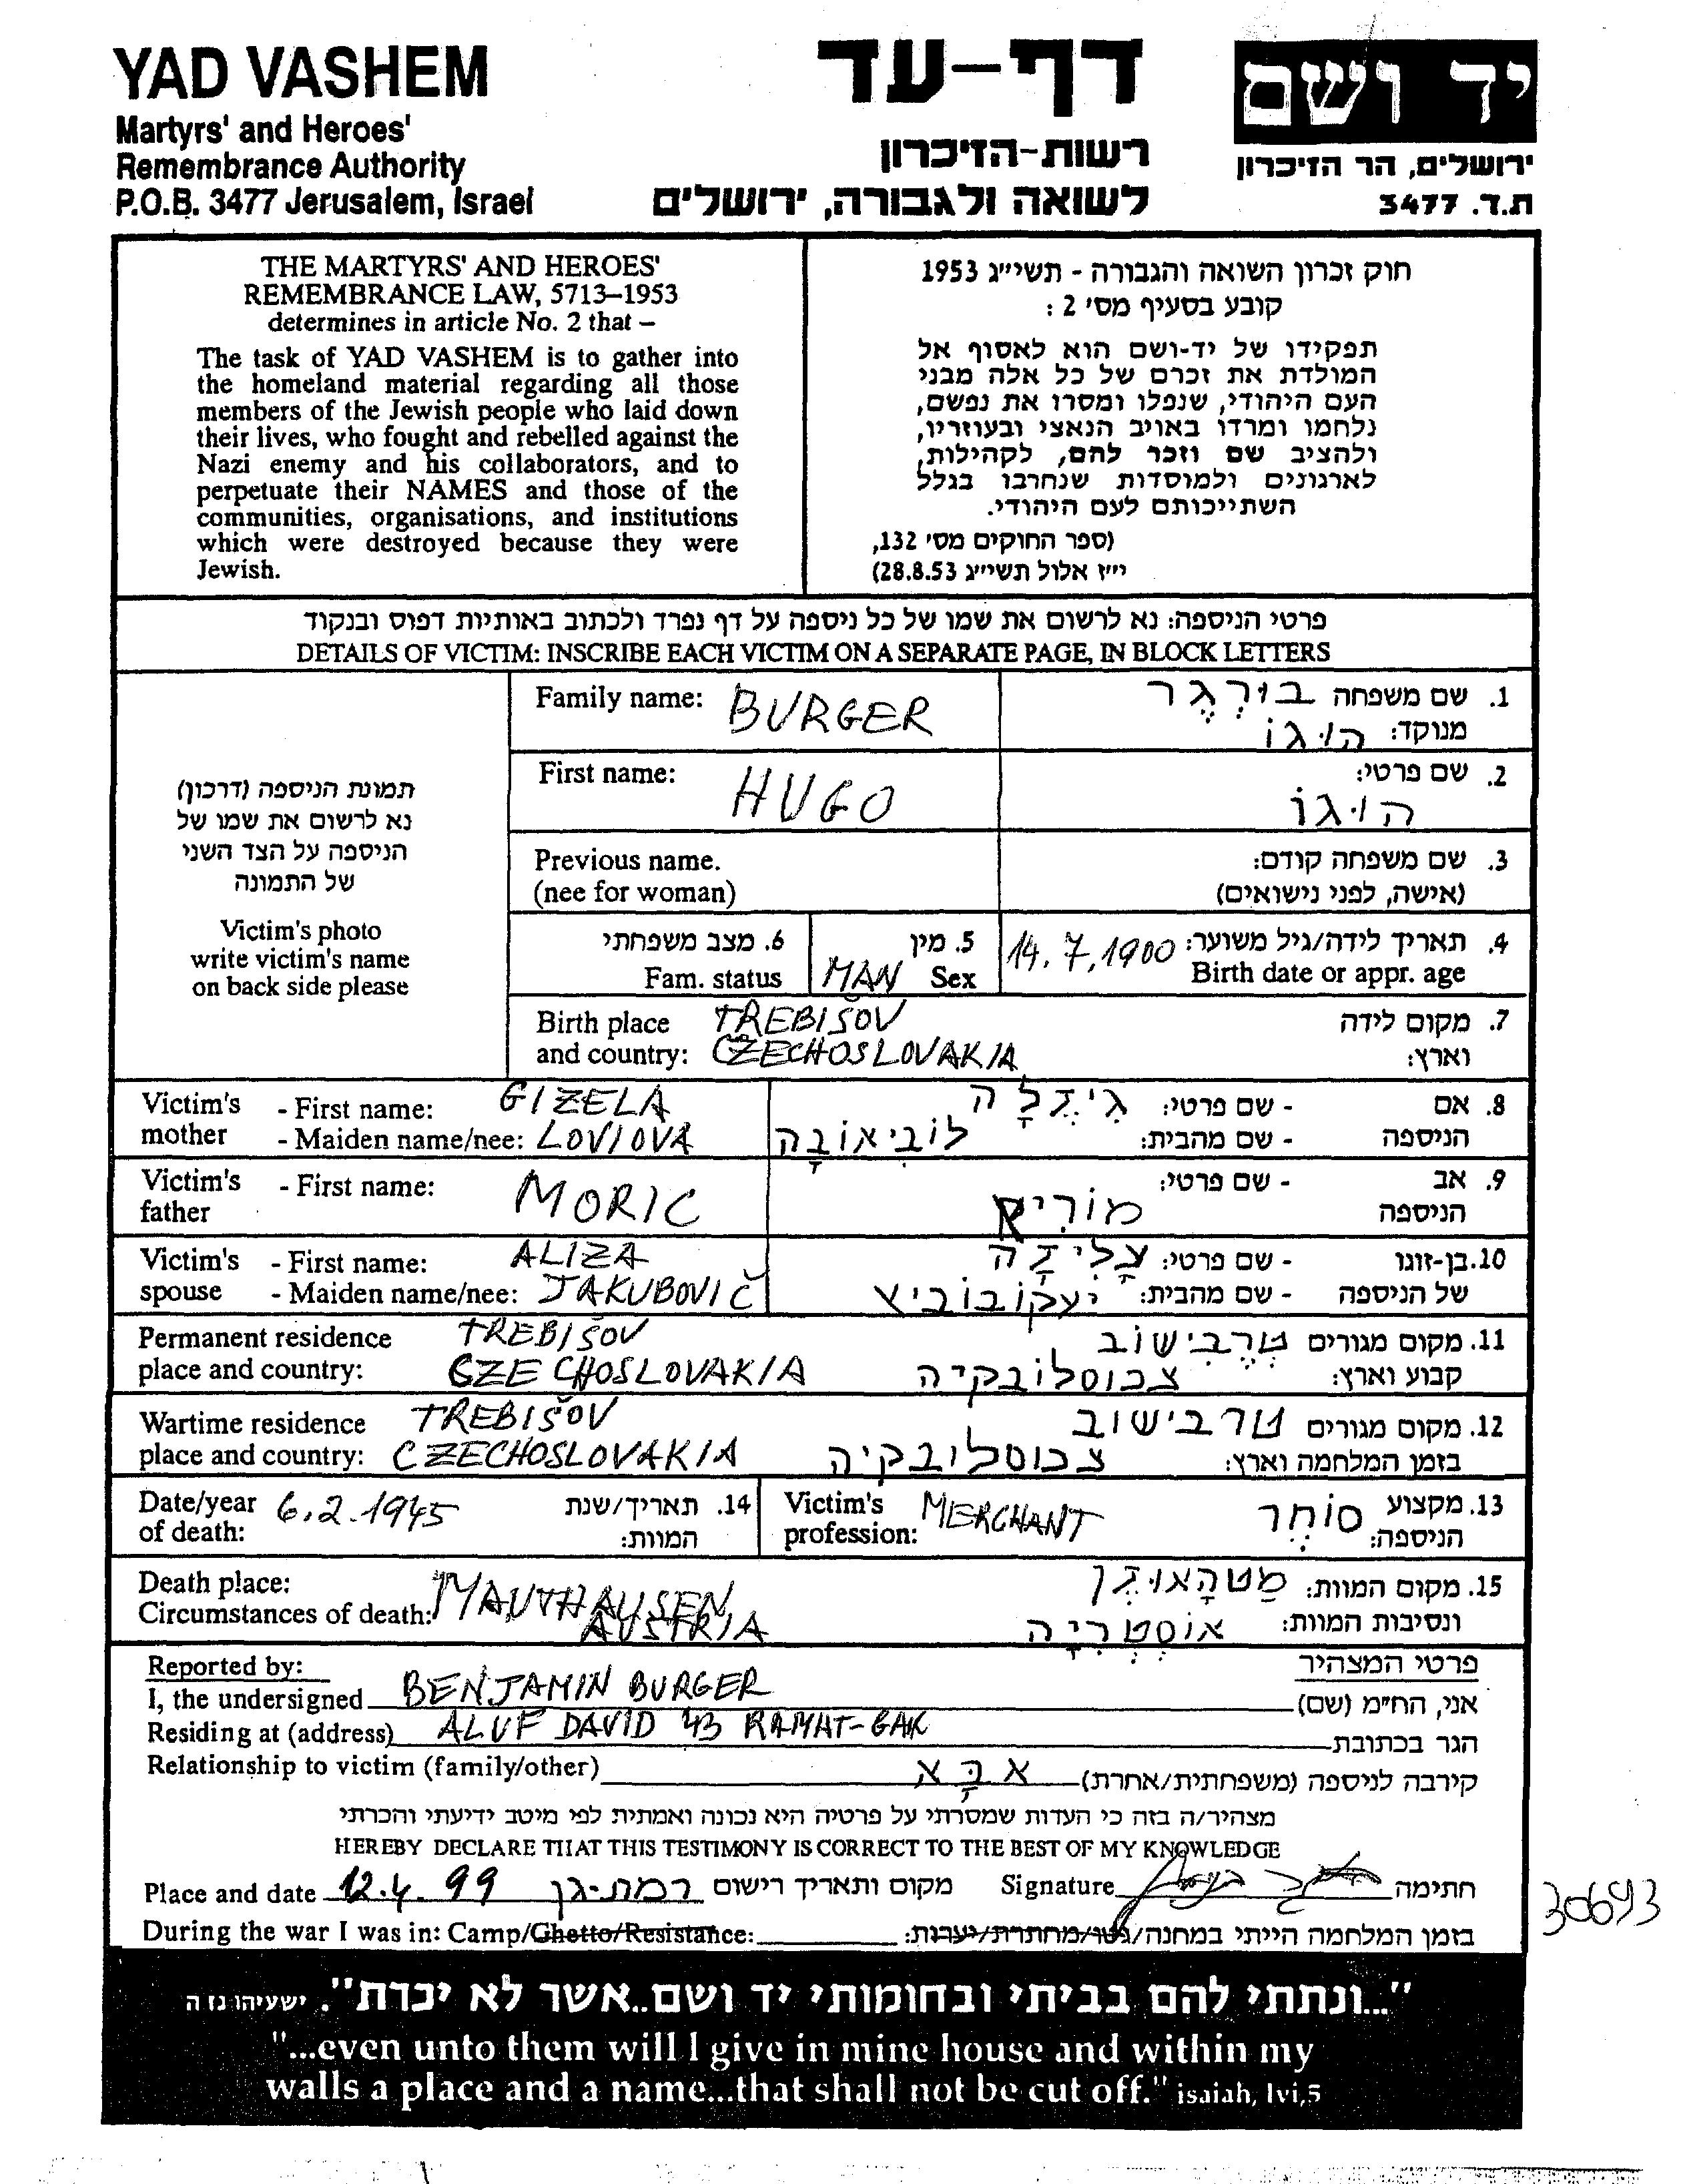 YAD VASHEM
Martyrs' and Heroes'
Remembrance Authority
P.O.B. 3477 Jerusalem, Israel
דף-עד
רשות-הזיכרון
לשואה ולגבורה, ירושלים
יד ושם
ירושלים, הר הזיכרון
ת.ד. 3477
THE MARTYRS' AND HEROES'
REMEMBRANCE LAW, 5713–1953
determines in article No. 2 that –
The task of YAD VASHEM is to gather into
the homeland material regarding all those
members of the Jewish people who laid down
their lives, who fought and rebelled against the
Nazi enemy and his collaborators, and to
perpetuate their NAMES and those of the
communities, organisations, and institutions
which were destroyed because they were
Jewish.
חוק זכרון השואה והגבורה - תשי״ג 1953
קובע בסעיף מס׳ 2 :
תפקידו של יד-ושם הוא לאסוף אל
המולדת את זכרם של כל אלה מבני
העם היהודי, שנפלו ומסרו את נפשם,
נלחמו ומרדו באויב הנאצי ובעוזריו,
ולהציב שם וזכר להם, לקהילות,
לארגונים ולמוסדות שנחרבו בגלל
השתייכותם לעם היהודי.
(ספר החוקים מס׳ 132,
י״ז אלול תשי״ג 28.8.53)
פרטי הניספה: נא לרשום את שמו של כל ניספה על דף נפרד ולכתוב באותיות דפוס ובנקוד
DETAILS OF VICTIM: INSCRIBE EACH VICTIM ON A SEPARATE PAGE, IN BLOCK LETTERS
תמונת הניספה (דרכון)
נא לרשום את שמו של
הניספה על הצד השני
של התמונה
Victim's photo
write victim's name
on back side please
Family name: BURGER
1. שם משפחה בורגר
מנוקד: הוגו
First name: HUGO
2. שם פרטי:
הוגו
Previous name.
(nee for woman)
3. שם משפחה קודם:
(אישה, לפני נישואים)
4. תאריך לידה/גיל משוער: 14.7.1900
Birth date or appr. age
5. מין
MAN Sex
6. מצב משפחתי
Fam. status
Birth place TREBIŠOV
and country: CZECHOSLOVAKIA
7. מקום לידה
וארץ:
Victim's - First name: GIZELA
mother - Maiden name/nee: LOVIOVA
8. אם - שם פרטי: גיזלה
הניספה - שם מהבית: לוביאובה
Victim's - First name: MORIC
father
9. אב - שם פרטי:
הניספה מוריץ
Victim's - First name: ALIZA
spouse - Maiden name/nee: JAKUBOVIČ
10. בן-זוגו - שם פרטי: עליזה
של הניספה - שם מהבית: יעקובוביץ
Permanent residence TREBIŠOV
place and country: CZECHOSLOVAKIA
11. מקום מגורים טרבישוב
קבוע וארץ: צכוסלובקיה
Wartime residence TREBIŠOV
place and country: CZECHOSLOVAKIA
12. מקום מגורים טרבישוב
בזמן המלחמה וארץ: צכוסלובקיה
Date/year 6.2.1945
of death:
14. תאריך/שנת
המוות:
Victim's MERCHANT
profession:
13. מקצוע סוחר
הניספה:
Death place: MAUTHAUSEN
Circumstances of death: AUSTRIA
15. מקום המוות: מטהאוזן
ונסיבות המוות: אוסטריה
Reported by:
פרטי המצהיר
I, the undersigned BENJAMIN BURGER
אני, הח״מ (שם)
Residing at (address) ALUF DAVID 43 RAMAT-GAN
הגר בכתובת
Relationship to victim (family/other)
קירבה לניספה (משפחתית/אחרת) אבא
מצהיר/ה בזה כי העדות שמסרתי על פרטיה היא נכונה ואמתית לפי מיטב ידיעתי והכרתי
HEREBY DECLARE THAT THIS TESTIMONY IS CORRECT TO THE BEST OF MY KNOWLEDGE
Place and date 12.4.99 רמת-גן מקום ותאריך רישום
Signature חתימה
During the war I was in: Camp/Ghetto/Resistance:
בזמן המלחמה הייתי במחנה/גטו/מחתרת/יערות:
30693
"...ונתתי להם בביתי ובחומותי יד ושם..אשר לא יכרת". ישעיהו נו ה
"...even unto them will I give in mine house and within my
walls a place and a name...that shall not be cut off." isaiah, lvi,5